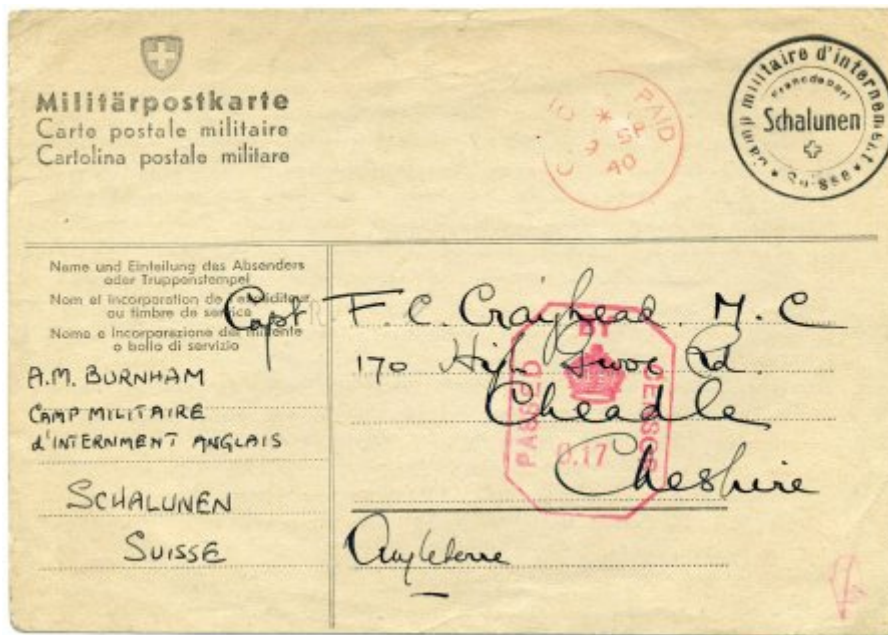 Militärpostkarte
Carte postale militaire
Cartolina postale militare
PAID
9 SP
40
Camp militaire d'internement
Franc de port
Schalunen
Suisse
Name und Einteilung des Absenders
oder Truppenstempel
Nom et incorporation de l'expéditeur
ou timbre de service
Nome e incorporazione del mittente
o bollo di servizio
A.M. BURNHAM
CAMP MILITAIRE
d'INTERNMENT ANGLAIS
SCHALUNEN
SUISSE
Capt F. C. Craighead M.C
170 High Rd.
Cheadle
Cheshire
Angleterre
PASSED BY CENSOR